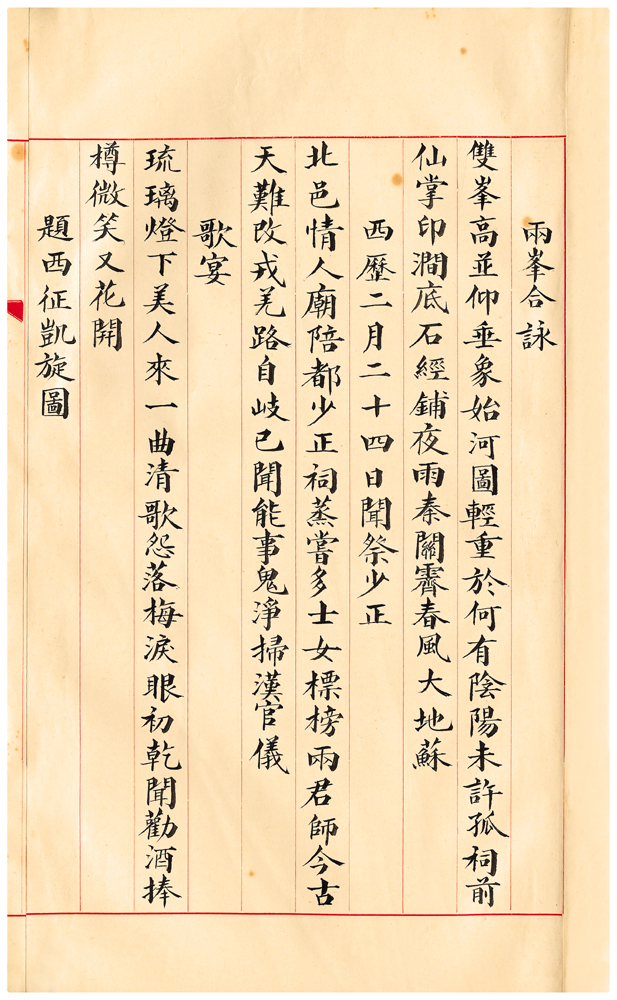 兩峯合詠
雙峯高並仰垂象始河圖輕重於何有陰陽未許孤祠前
仙掌印澗底石經鋪夜雨秦關霽春風大地蘇
西歷二月二十四日聞祭少正
北邑情人廟陪都少正祠蒸嘗多士女標榜兩君師今古
天難改戎羌路自歧已聞能事鬼淨掃漢官儀
歌宴
琉璃燈下美人來一曲清歌怨落梅淚眼初乾聞勸酒捧
樽微笑又花開
題西征凱旋圖